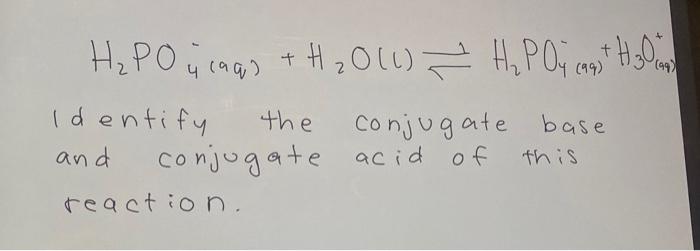 H₂PO₄⁻(aq) + H₂O(l) ⇌ H₂PO₄⁻(aq) + H₃O⁺(aq)
Identify the conjugate base
and conjugate acid of this
reaction.